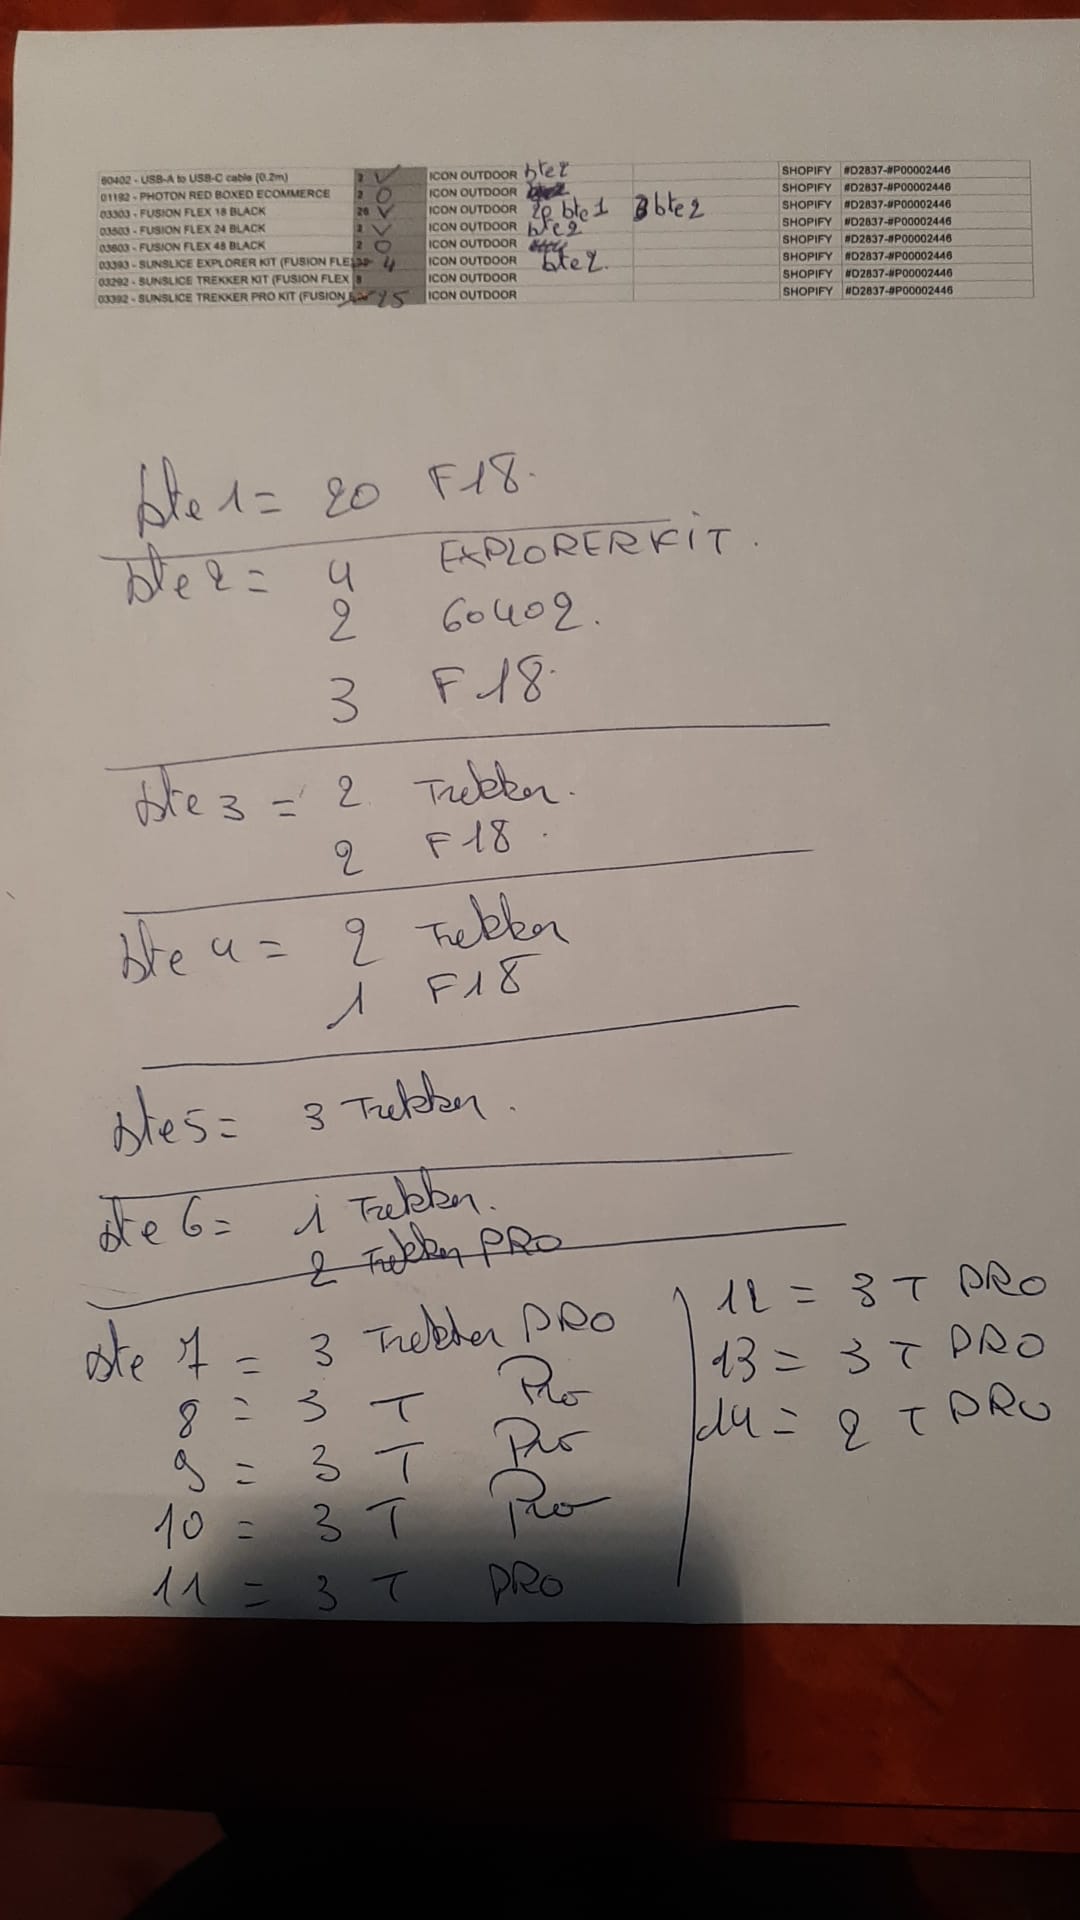 60402 - USB-A to USB-C cable (0.2m) 2 ✓ ICON OUTDOOR bte2 SHOPIFY #D2837-#P00002446
01192 - PHOTON RED BOXED ECOMMERCE 2 0 ICON OUTDOOR SHOPIFY #D2837-#P00002446
03303 - FUSION FLEX 18 BLACK 26 ✓ ICON OUTDOOR 20 bte1 3 bte2 SHOPIFY #D2837-#P00002446
03503 - FUSION FLEX 24 BLACK 2 ✓ ICON OUTDOOR bte2 SHOPIFY #D2837-#P00002446
03603 - FUSION FLEX 48 BLACK 2 0 ICON OUTDOOR SHOPIFY #D2837-#P00002446
03393 - SUNSLICE EXPLORER KIT (FUSION FLE 4 ICON OUTDOOR bte2. SHOPIFY #D2837-#P00002446
03292 - SUNSLICE TREKKER KIT (FUSION FLEX 8 ICON OUTDOOR SHOPIFY #D2837-#P00002446
03392 - SUNSLICE TREKKER PRO KIT (FUSION 25 ICON OUTDOOR SHOPIFY #D2837-#P00002446
bte 1 = 20 F18.
bte 2 = 4 EXPLORERKIT.
2 60402.
3 F18.
bte 3 = 2 Trekker.
2 F18.
bte 4 = 2 Trekker
1 F18
bte5 = 3 Trekker.
bte 6 = 1 Trekker.
2 Trekker PRO
bte 7 = 3 Trekker PRO
8 = 3 T Pro
9 = 3 T Pro
10 = 3 T Pro
11 = 3 T PRO
12 = 3 T PRO
13 = 3 T PRO
14 = 2 T PRO